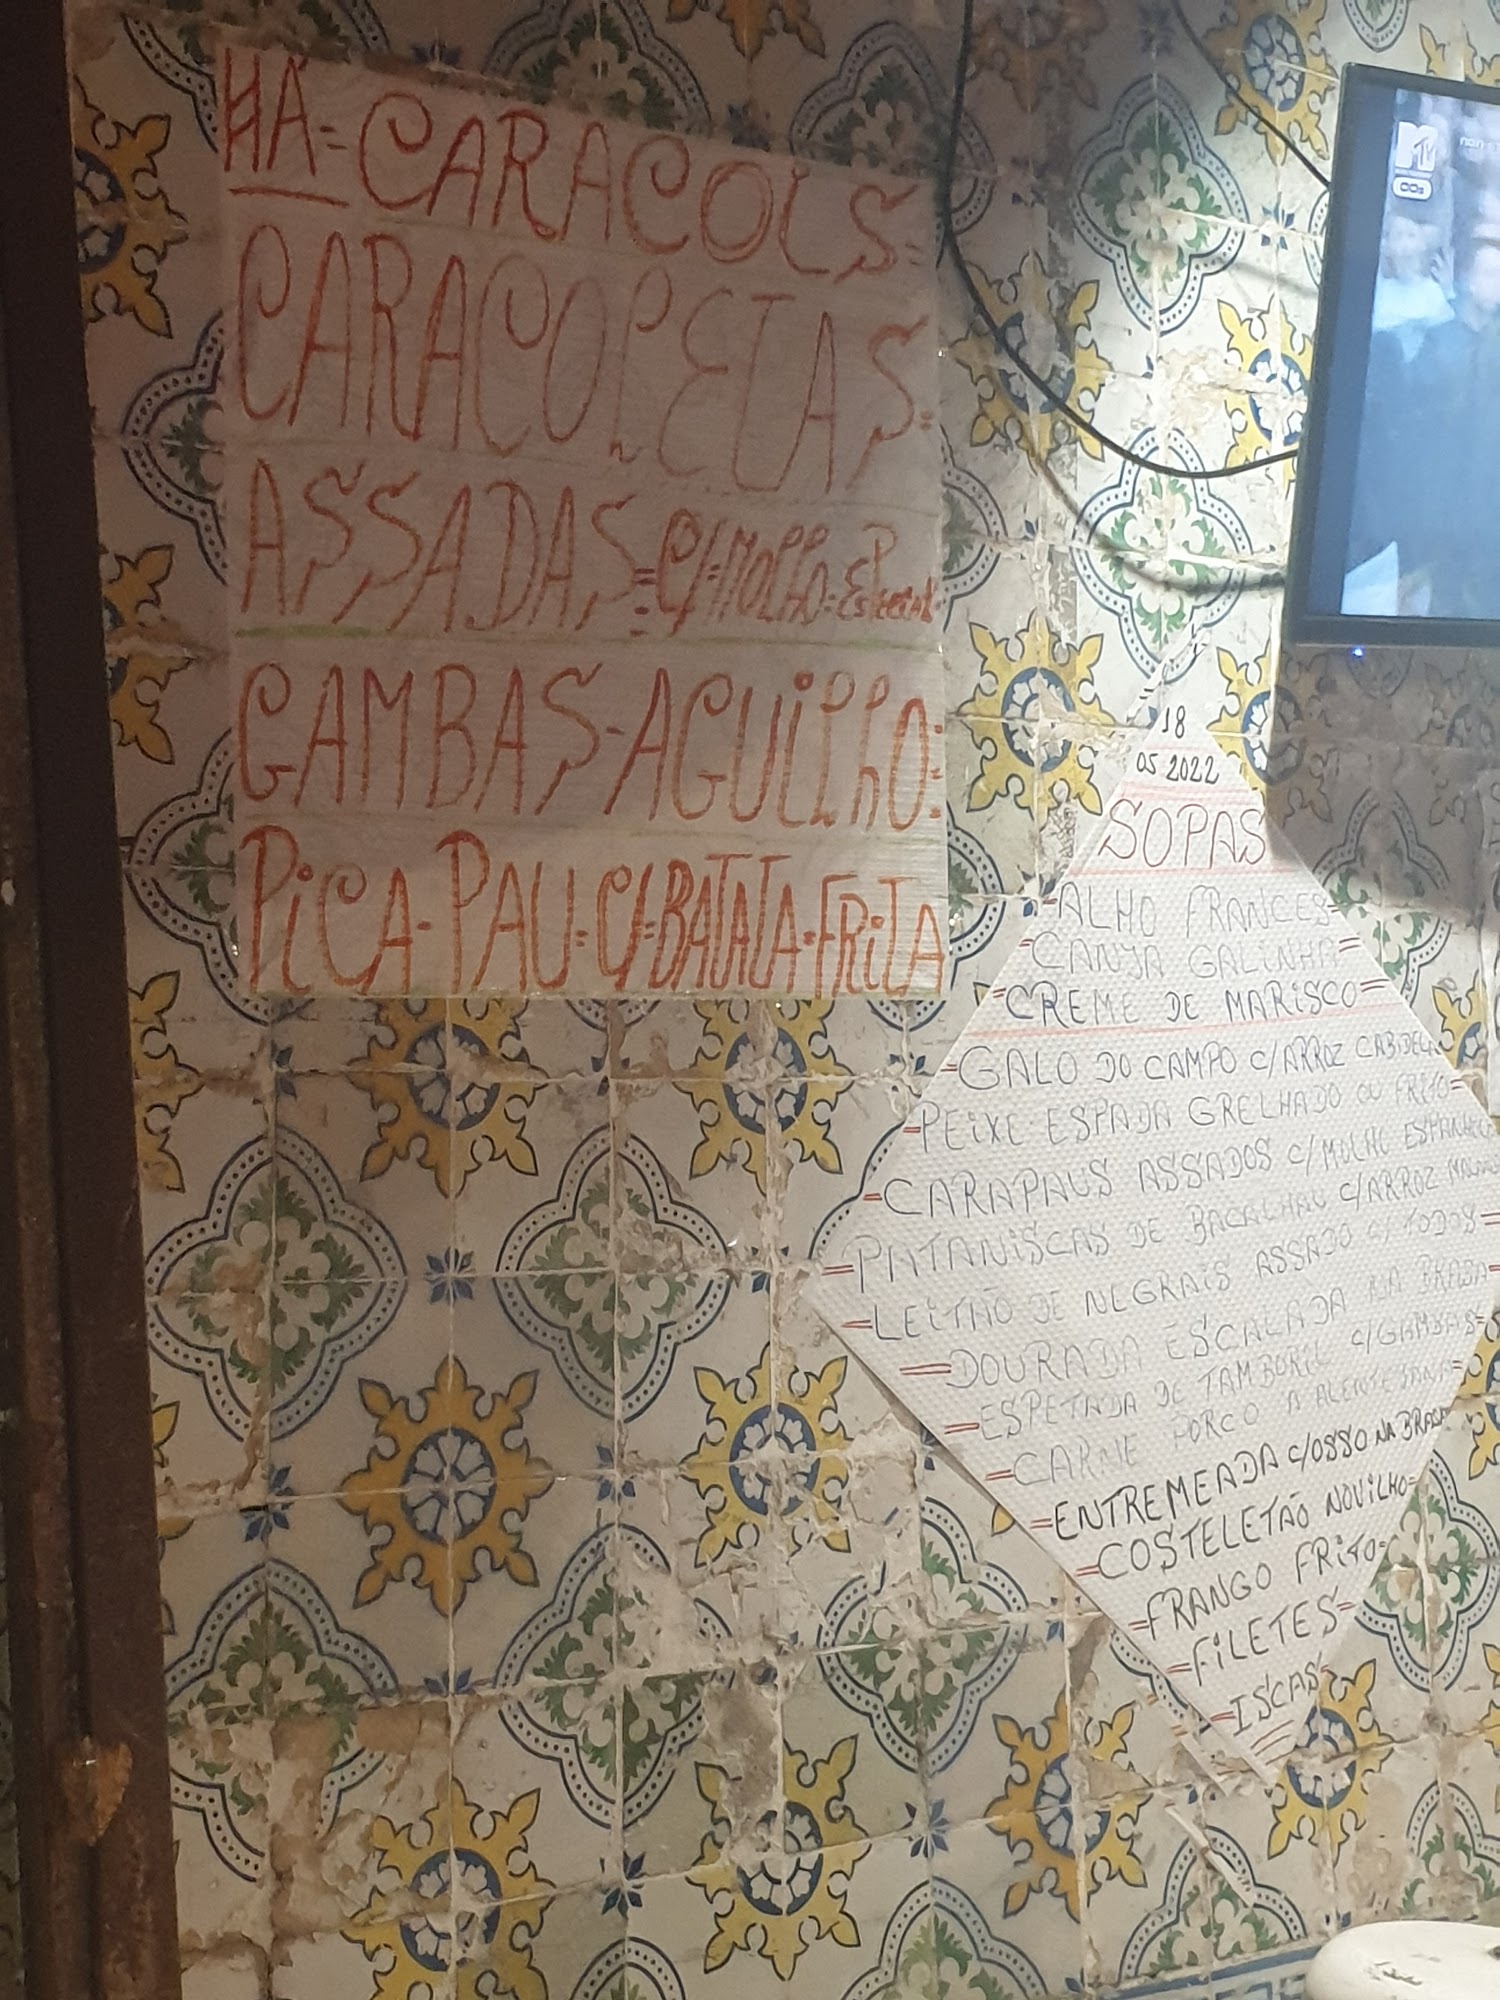 HÁ=CARACOLS=
CARACOLETAS=
ASSADAS=C/=MOLHO=ESPECIAL
GAMBAS-AGUILHO=
PICA-PAU=C/=BATATA=FRITA
18
05 2022
SOPAS
=ALHO FRANCES=
=CANJA GALINHA=
=CREME DE MARISCO=
=GALO DO CAMPO C/ARROZ CABIDELA
=PEIXE ESPADA GRELHADO OU FRITO=
=CARAPAUS ASSADOS C/MOLHO ESPANHOL
=PATANISCAS DE BACALHAU C/ARROZ
=LEITÃO DE NEGRAIS ASSADO C/TODOS=
=DOURADA ESCALADA NA BRASA
=ESPETADA DE TAMBORIL C/GAMBAS=
=CARNE PORCO A ALENTEJANA=
=ENTREMEADA C/OSSO NA BRASA
=COSTELETÃO NOVILHO=
=FRANGO FRITO=
=FILETES=
=ISCAS=
MTV